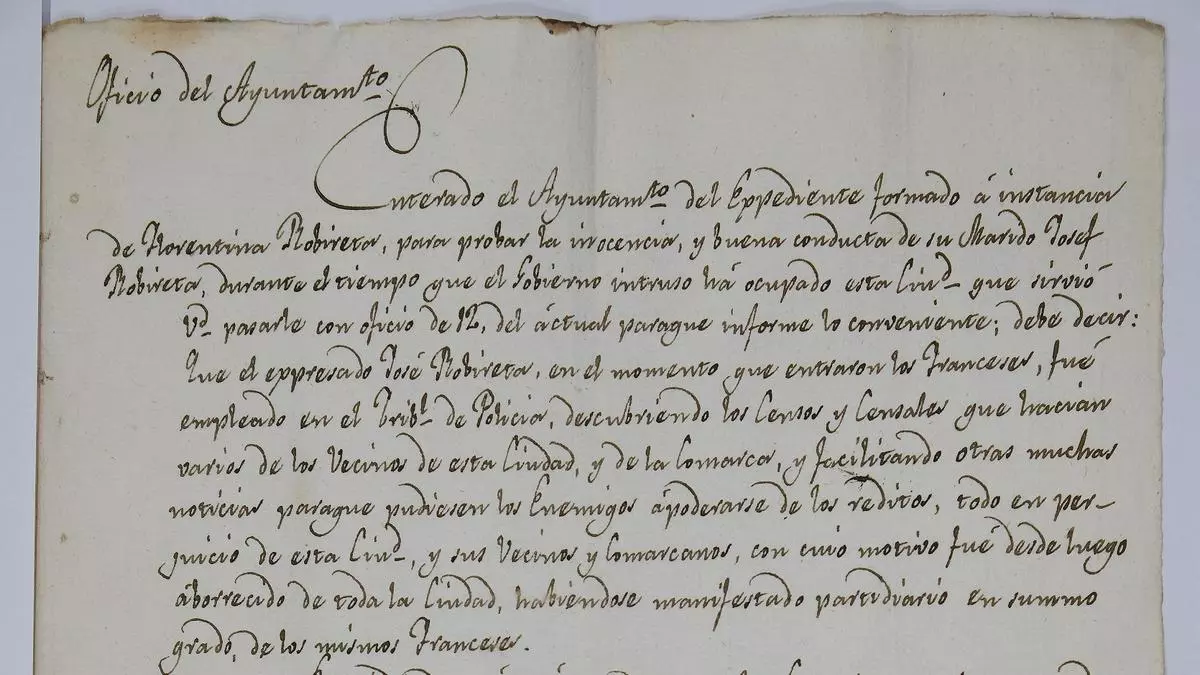 Oficio del Ayuntam.to
Enterado el Ayuntam.to del Expediente formado á instancia
de Florentina Robireta, para probar la inocencia, y buena conducta de su Marido Josef
Robireta, durante el tiempo que el Gobierno intruso há ocupado esta Ciud. que sirvió
Vd. pasarle con oficio de 12, del áctual paraque informe lo conveniente; debe decir:
Que el expresado José Robireta, en el momento que entraron los Franceses, fué
empleado en el Tribl. de Policia, descubriendo los Censos y Censales que hacian
varios de los Vecinos de esta Ciudad, y de la Comarca, y facilitando otras muchas
noticias paraque pudiesen los Enemigos ápoderarse de los reditos, todo en per-
juicio de esta Ciud., y sus Vecinos y Comarcanos, con cuio motivo fue desde luego
áborrecido de toda la Ciudad, habiendose manifestado partidiario en summo
grado, de los mismos Franceses.